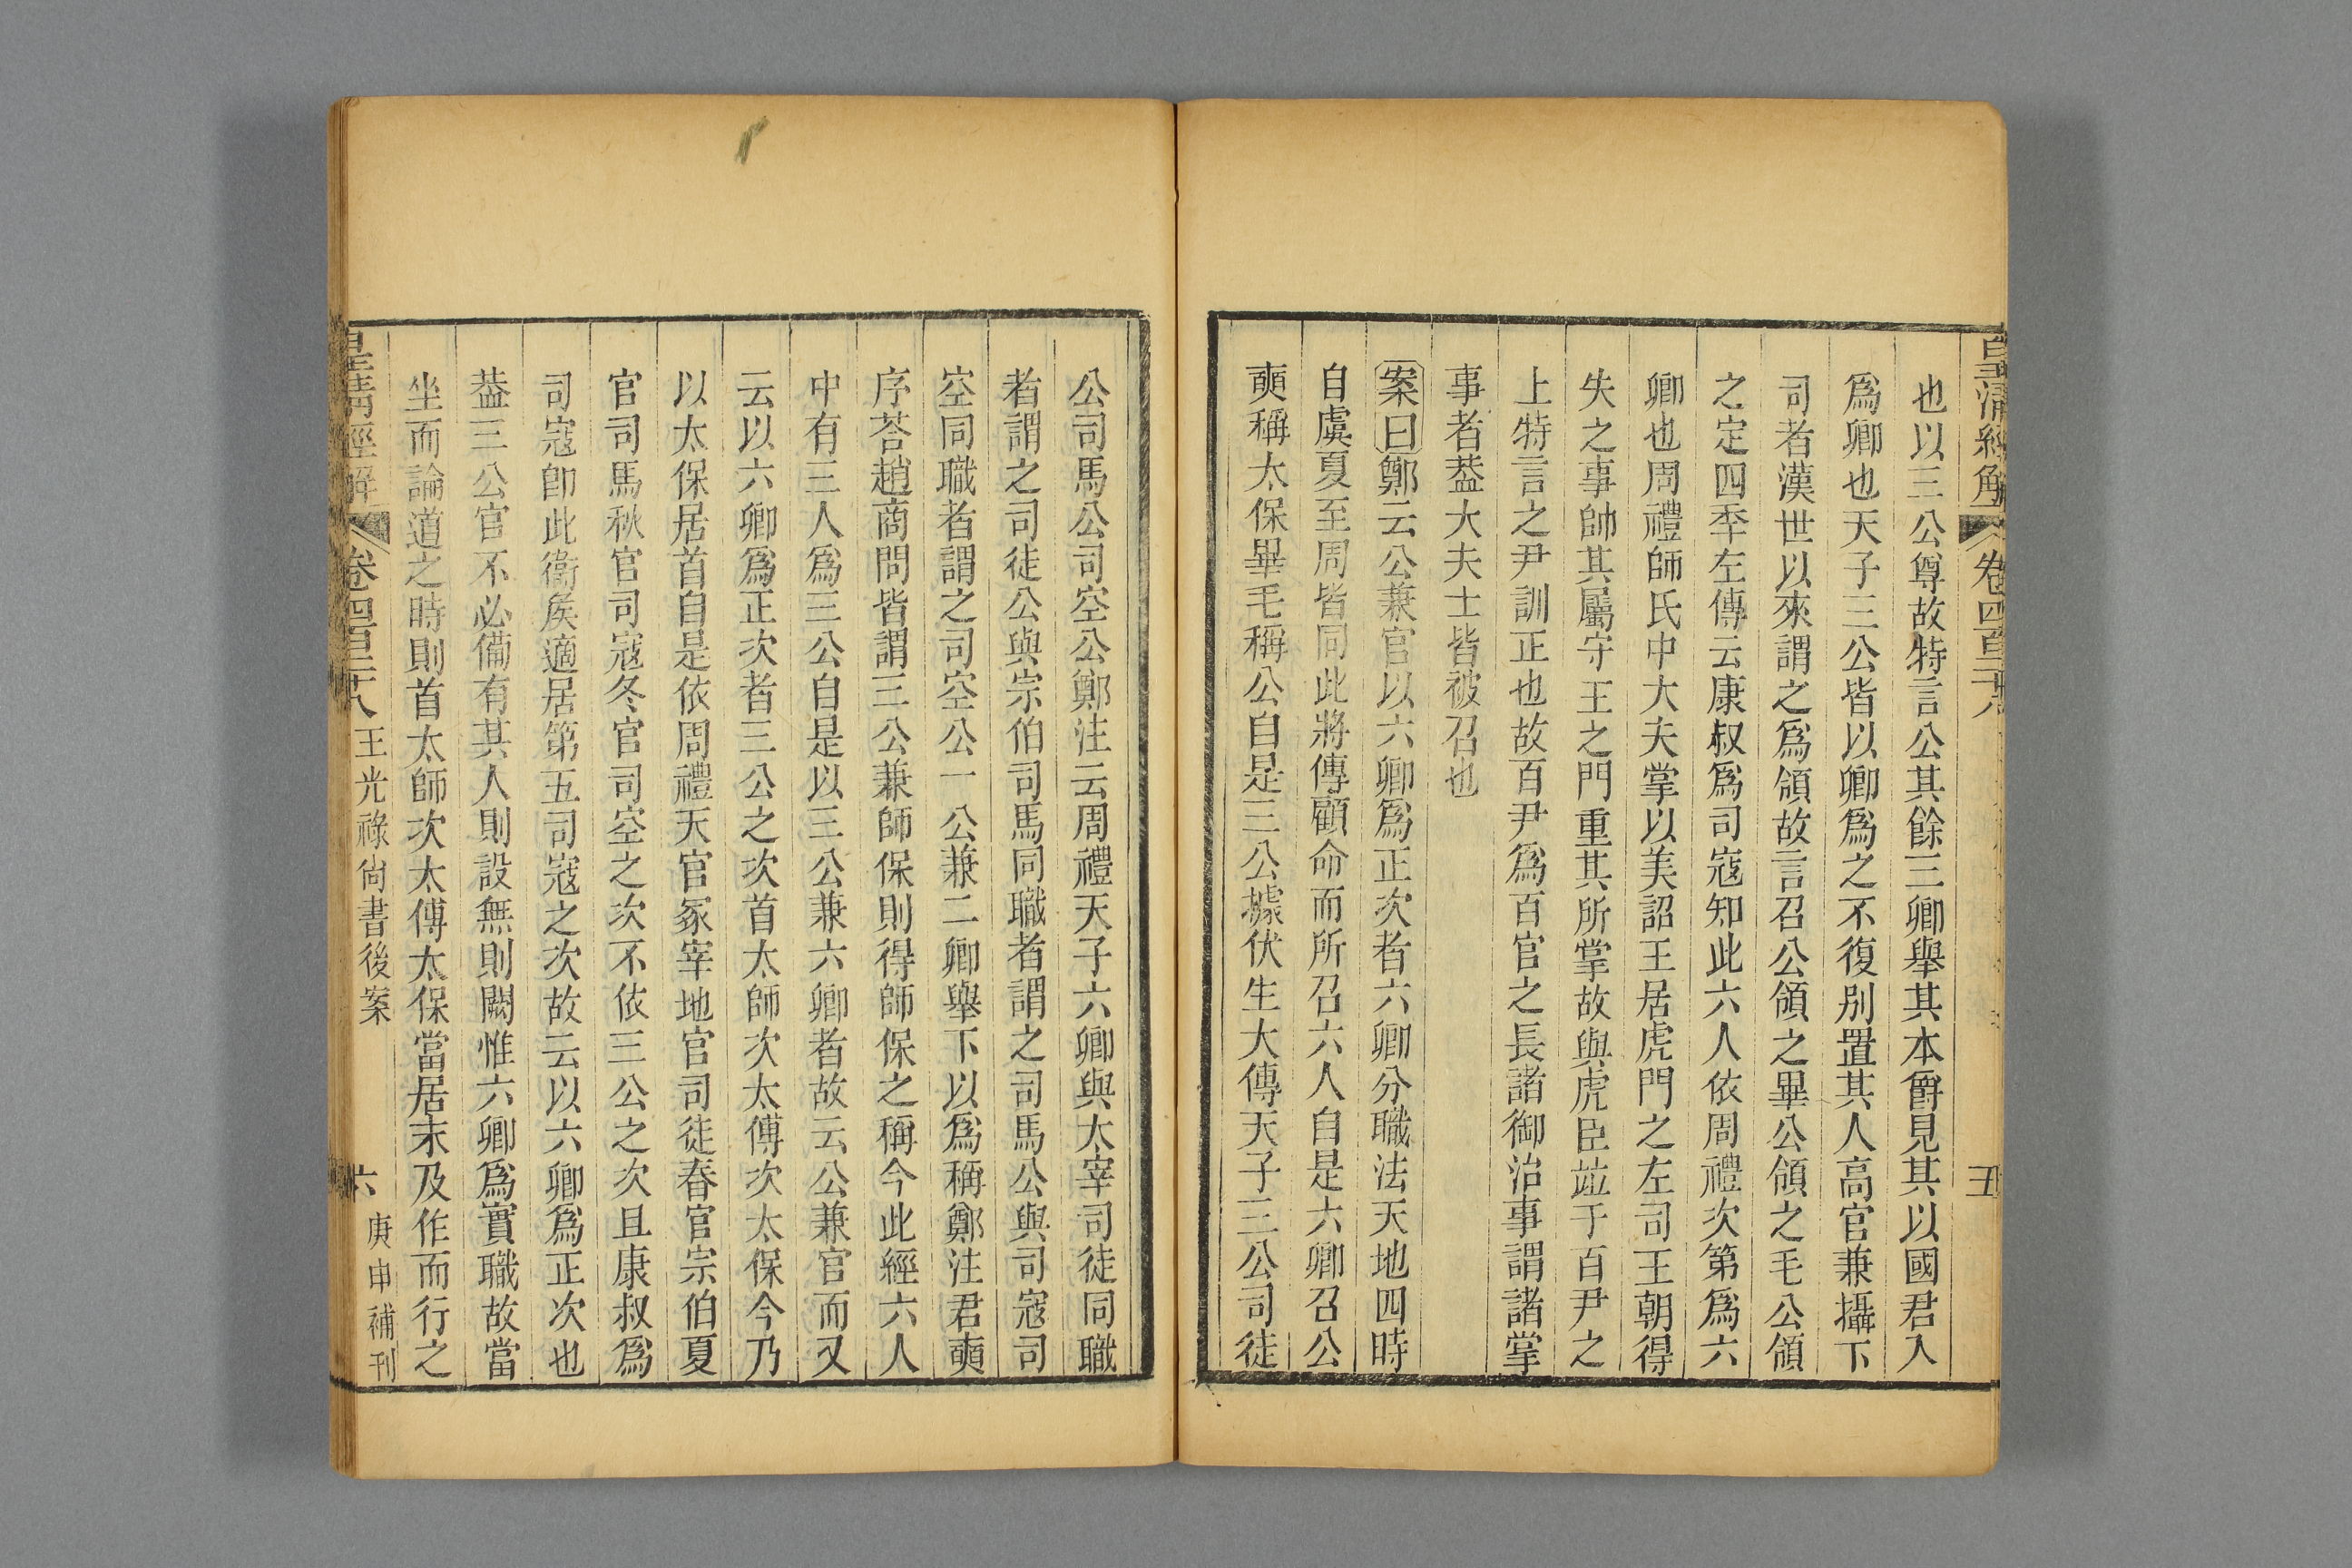 皇清經解 卷四百三十八 五
也以三公尊故特言公其餘三卿舉其本爵見其以國君入
爲卿也天子三公皆以卿爲之不復別置其人高官兼攝下
司者漢世以來謂之爲領故言召公領之畢公領之毛公領
之定四季左傳云康叔爲司寇知此六人依周禮次第爲六
卿也周禮師氏中大夫掌以美詔王居虎門之左司王朝得
失之事帥其屬守王之門重其所掌故與虎臣竝于百尹之
上特言之尹訓正也故百尹爲百官之長諸御治事謂諸掌
事者葢大夫士皆被召也
案曰鄭云公兼官以六卿爲正次者六卿分職法天地四時
自虞夏至周皆同此將傳顧命而所召六人自是六卿召公
奭稱太保畢毛稱公自是三公據伏生大傳天子三公司徒
公司馬公司空公鄭注云周禮天子六卿與太宰司徒同職
者謂之司徒公與宗伯司馬同職者謂之司馬公與司寇司
空同職者謂之司空公一公兼二卿舉下以爲稱鄭注君奭
序荅趙商問皆謂三公兼師保則得師保之稱今此經六人
中有三人爲三公自是以三公兼六卿者故云公兼官而又
云以六卿爲正次者三公之次首太師次太傅次太保今乃
以太保居首自是依周禮天官冢宰地官司徒春官宗伯夏
官司馬秋官司寇冬官司空之次不依三公之次且康叔爲
司寇卽此衞矦適居第五司寇之次故云以六卿爲正次也
葢三公官不必備有其人則設無則闕惟六卿爲實職故當
坐而論道之時則首太師次太傅太保當居末及作而行之
皇清經解 卷四百三十八 王光祿尙書後案 六 庚申補刊